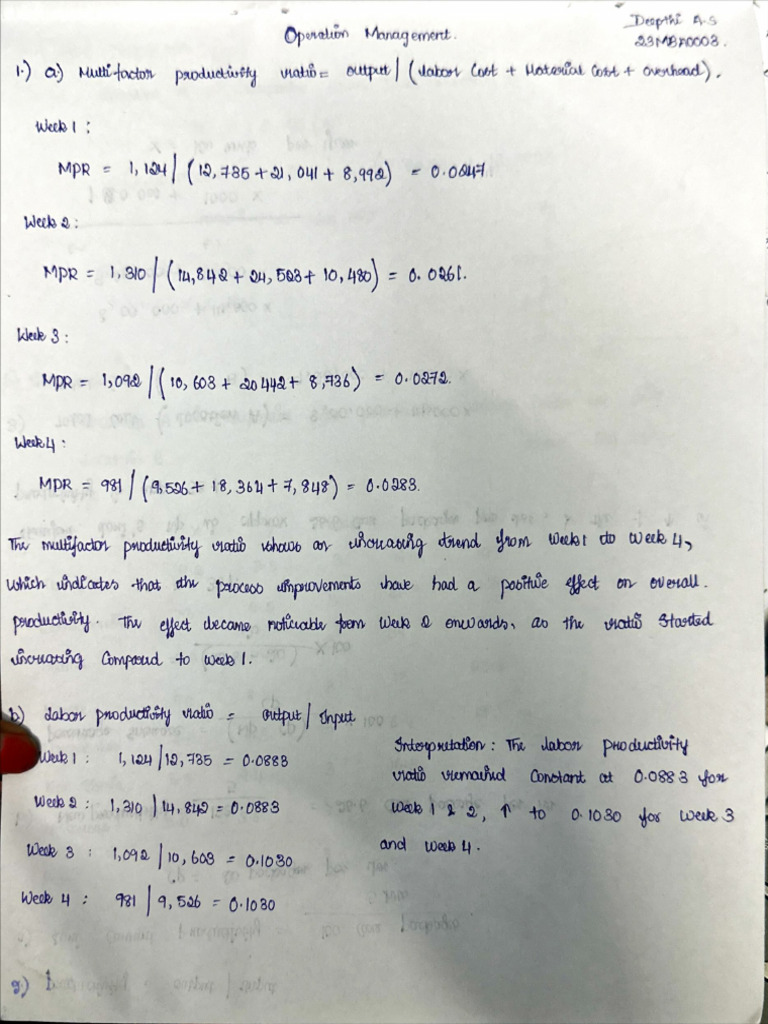 Deepthi A.S
Operation Management.
23MBA0003.
1.) a) Multifactor productivity ratio = output / (Labor Cost + Material Cost + overhead).
Week 1 :
MPR = 1,124 / (12,735 + 21,041 + 8,992) = 0.0247
Week 2 :
MPR = 1,310 / (14,842 + 24,523 + 10,480) = 0.0261.
Week 3 :
MPR = 1,092 / (10,603 + 20442 + 8,736) = 0.0272.
Week 4 :
MPR = 981 / (9,526 + 18,364 + 7,848) = 0.0283.
The multifactor productivity ratio shows an increasing trend from Week 1 to Week 4,
which indicates that the process improvements have had a positive effect on overall.
productivity. The effect became noticable from Week 2 onwards, as the ratio started
increasing compared to Week 1.
b) Labor productivity ratio = output / Input
Week 1 : 1,124 / 12,735 = 0.0883
Week 2 : 1,310 / 14,842 = 0.0883
Week 3 : 1,092 / 10,603 = 0.1030
Week 4 : 981 / 9,526 = 0.1030
Interpretation : The labor productivity
ratio remained Constant at 0.0883 for
Week 1 & 2, ↑ to 0.1030 for Week 3
and Week 4.
2.)